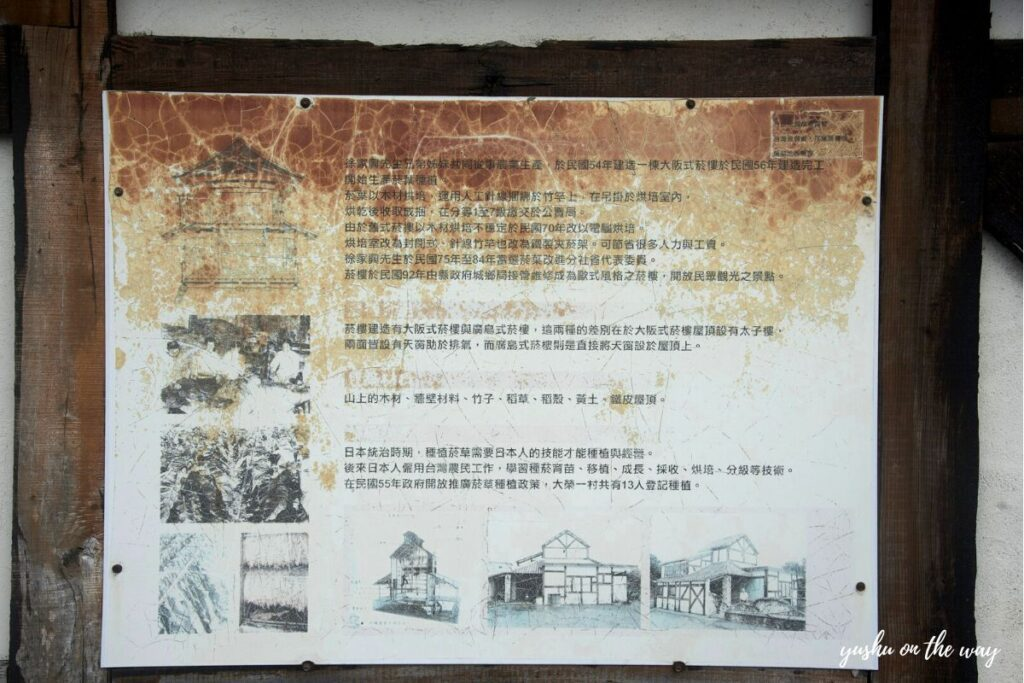 徐家興先生兄弟姊妹共同從事農業生產，於民國54年建造一棟大阪式菸樓於民國56年建造完工
開始生產菸葉種植。
菸葉以木材烘培，運用人工針線捆綁於竹竿上，在吊掛於烘培室內，
烘乾後收取成捆，在分等1至7級繳交於公賣局。
由於舊式菸樓以木材烘培不穩定於民國70年改以電腦烘培。
烘培室改為封閉式、針線竹竿也改為鐵製夾菸架。可節省很多人力與工資。
徐家興先生於民國75年至84年當選菸葉改進分社省代表委員。
菸樓於民國92年由縣政府城鄉局接管維修成為歐式風格之菸樓，開放民眾觀光之景點。
菸樓建造有大阪式菸樓與廣島式菸樓，這兩種的差別在於大阪式菸樓屋頂設有太子樓，
兩面皆設有天窗助於排氣，而廣島式菸樓則是直接將天窗設於屋頂上。
山上的木材、牆壁材料、竹子、稻草、稻殼、黃土、鐵皮屋頂。
日本統治時期，種植菸草需要日本人的技能才能種植與經營。
後來日本人僱用台灣農民工作，學習種菸育苗、移植、成長、採收、烘培、分級等技術。
在民國55年政府開放推廣菸草種植政策，大榮一村共有13人登記種植。
yushu on the way